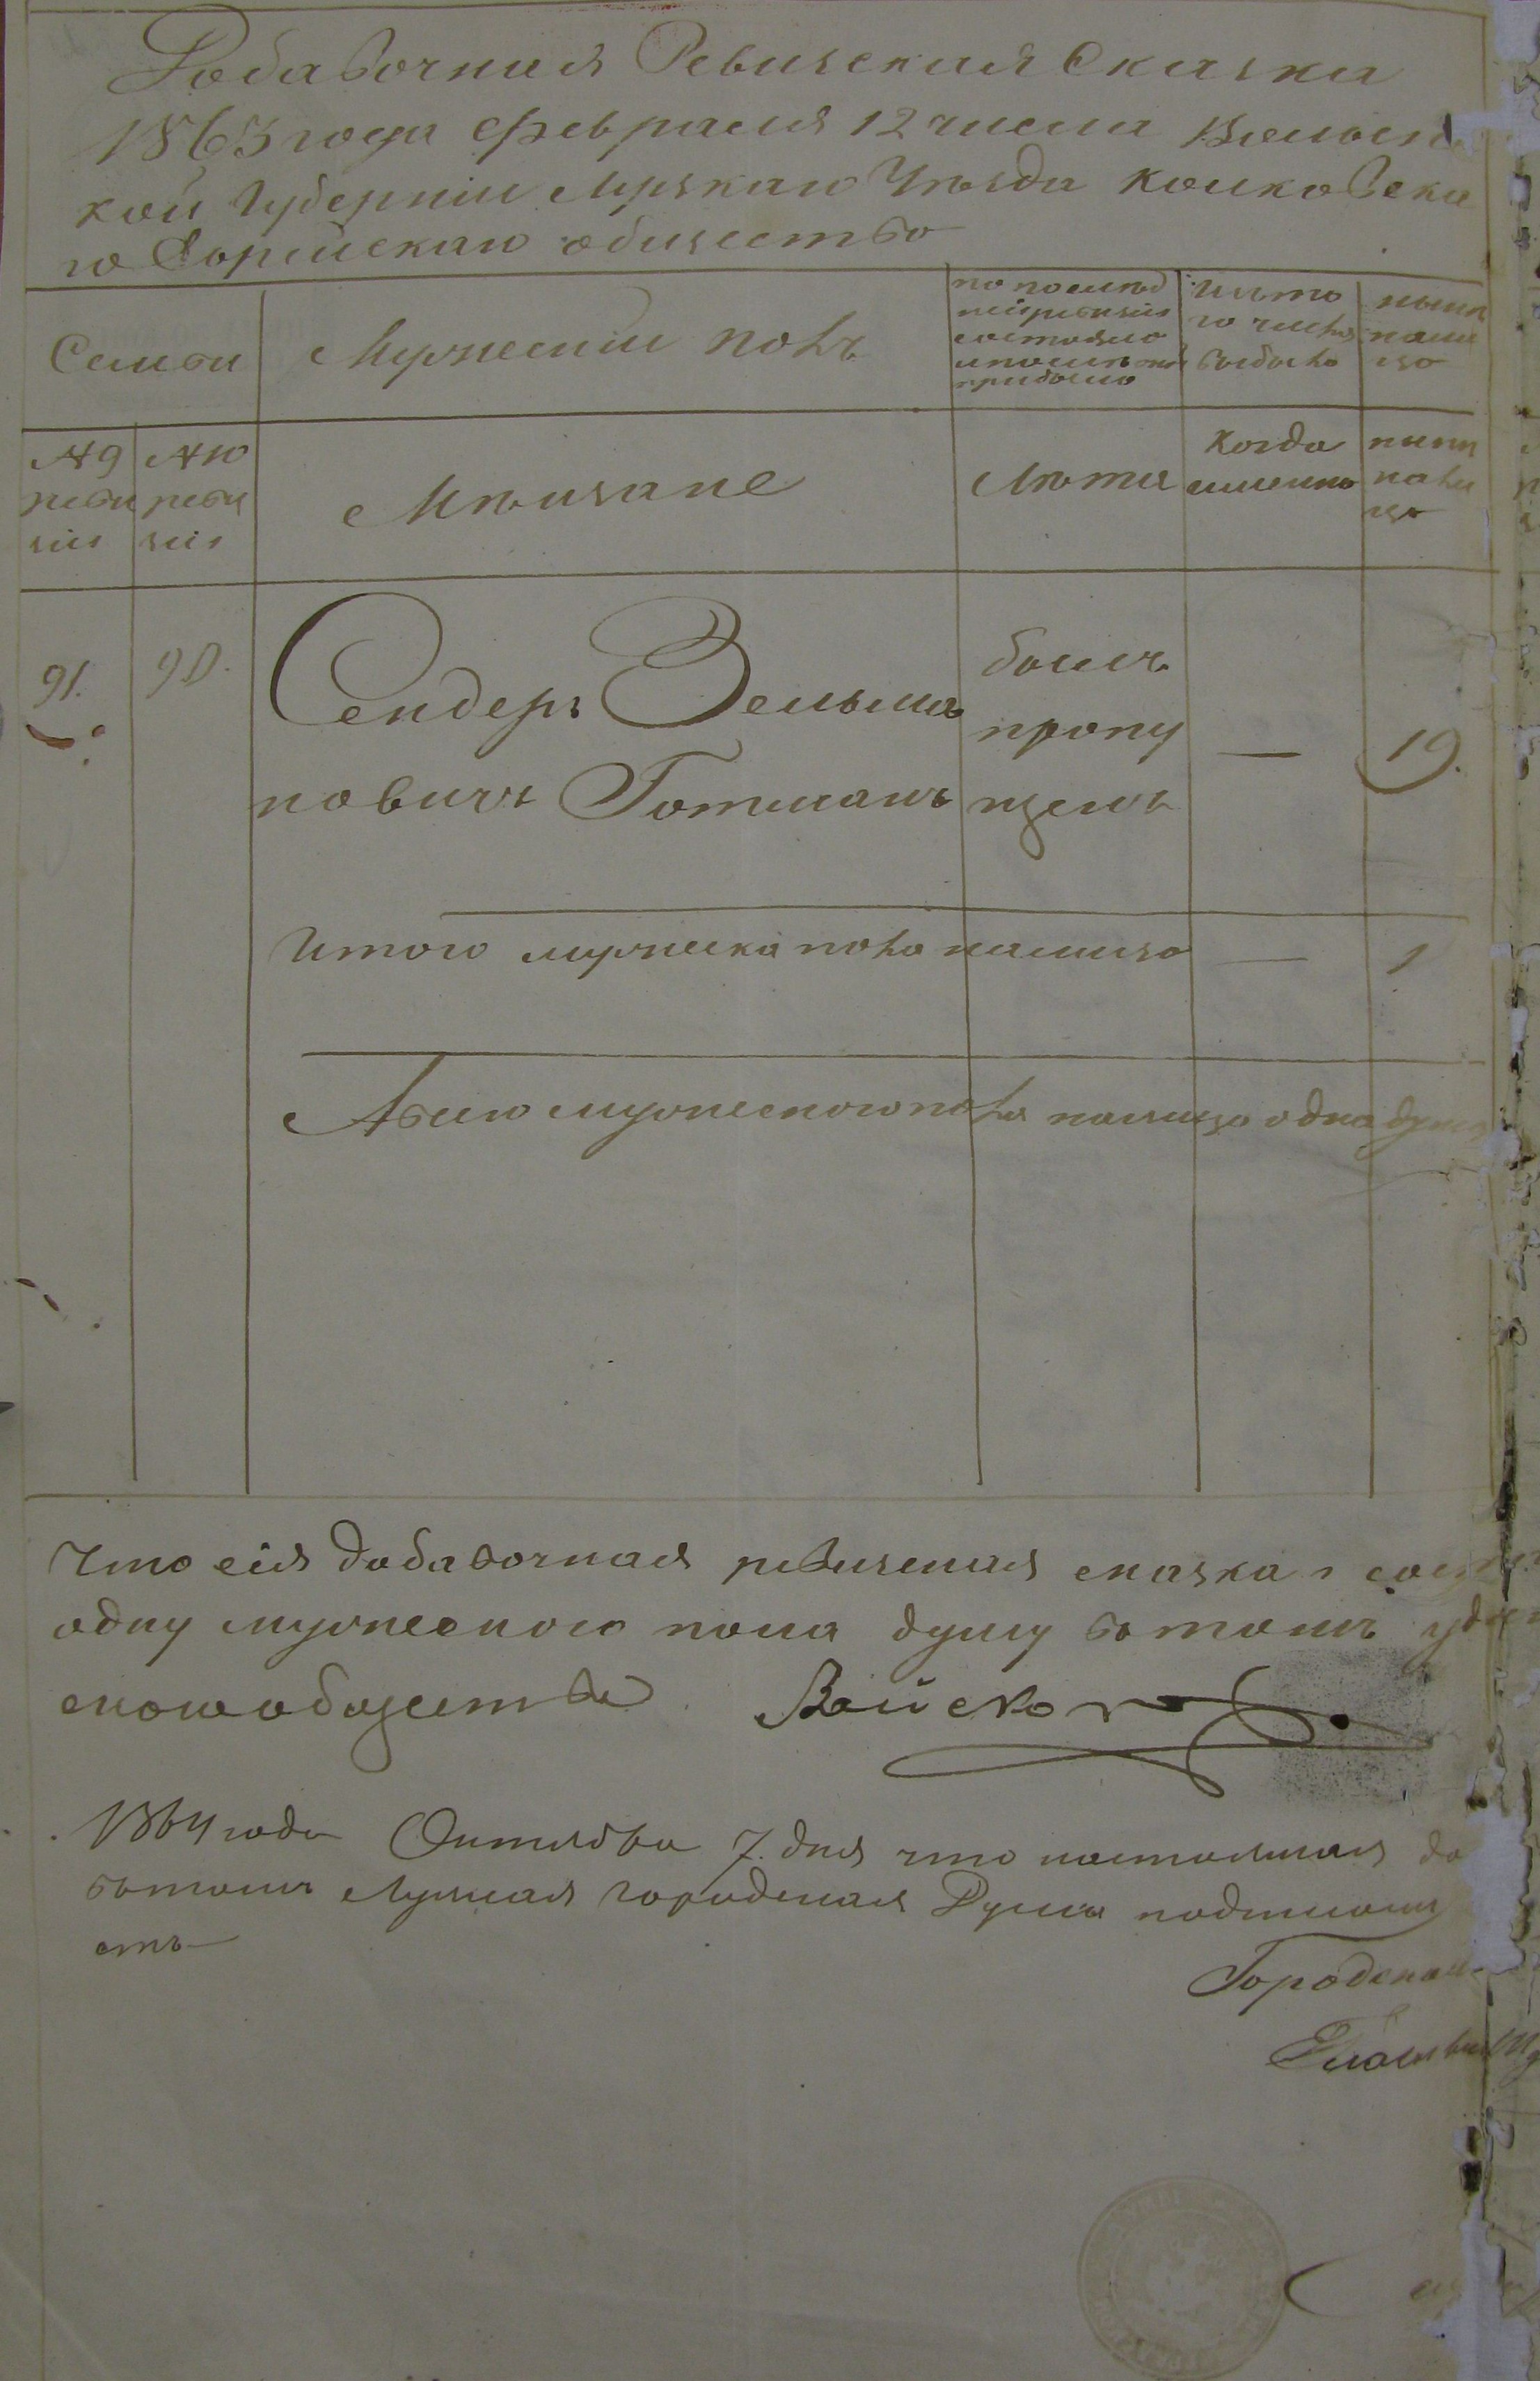 Добавочная Ревизская Сказка
1863 года Февраля 12 числа Волынс
кой Губерніи Луцкаго Уезда Колковска
го Еврейскаго обшество
Семьи
Мужескій полъ
по послѣд
ней ревизіи
состояло
и послѣ того
прибыло
Изъ то
го числа
выбыло
нынѣ
нали
цо
№ 9
реви
зіи
№ 10
реви
зіи
Мѣщане
Лѣта
Когда
именно
нынѣ
нали
цо
91.
90.
Сендеръ Зельма
новичъ Готманъ
былъ
пропу
щенъ
—
19.
Итого мужеска пола налицо — 1
Всего мужеского пола налицо одна душа
Что сія добавочная ревизская сказка
одну мужеского пола душу въ томъ
ского общества
1864 года Октября 7. дня что настоящая до
въ томъ Луцкая городская Дума
етъ
Городской